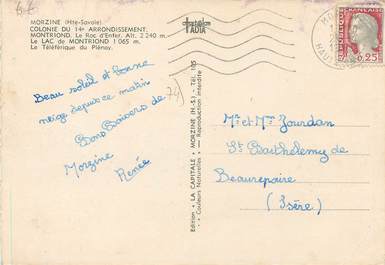 MORZINE (Hte-Savoie)
COLONIE DU 14e ARRONDISSEMENT.
MONTRIOND. Le Roc d'Enfer. Alt. 2.240 m.
Le LAC de MONTRIOND 1 065 m.
Le Téléférique du Pléney.
Beau soleil et bonne
neige depuis ce matin
Bons Baisers de
Morzine
Renée
Edition « LA CAPITALE » MORZINE (H.-S.) - Tél. 105
« Couleurs Naturelles » — Reproduction interdite
FRANÇAISE
0,25
Mr et Mme Jourdan
St Barthélemy de
Beaurepaire
(Isère)